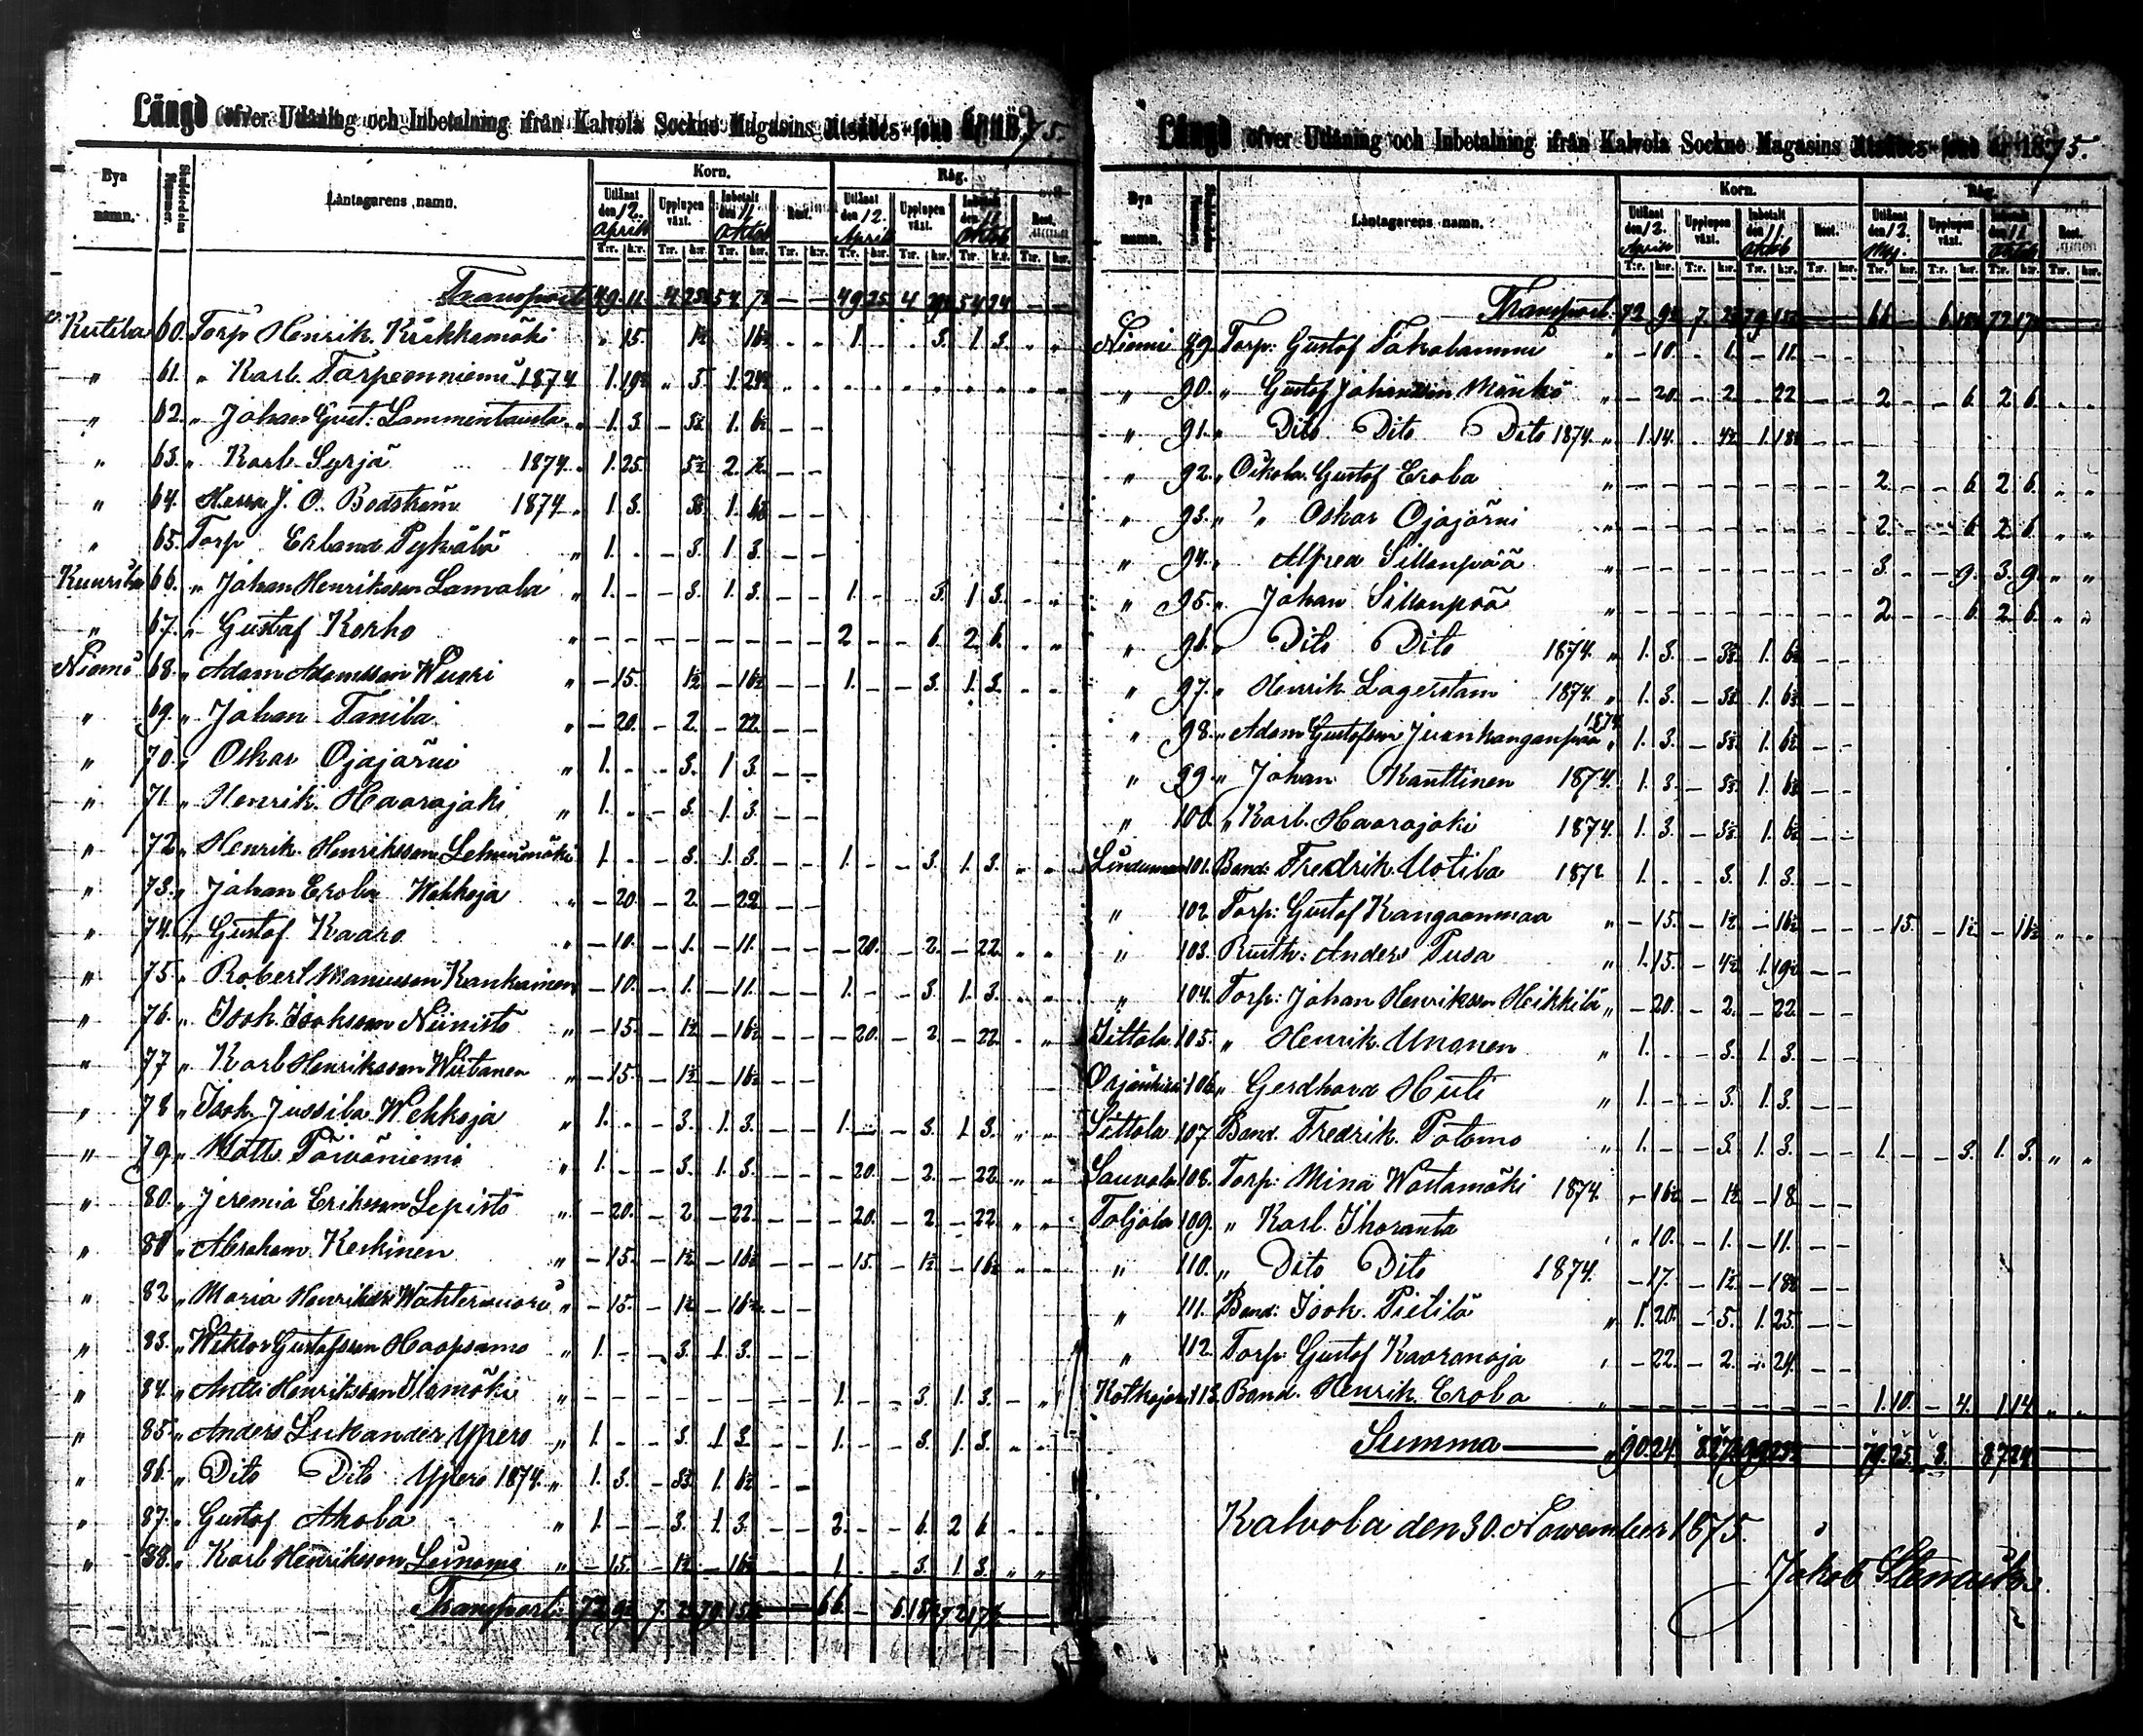 Längd öfver Utlåning och Inbetalning ifrån Kalvola Sockne Magasins Utsädes-fond år 1875.
Bya namn. Låntagarens namn. Korn. Råg.
Utlånt den 12. April Upplupen växt. Inbetalt den 11 Oktob Rest. Utlånt den 12. April Upplupen växt. Inbetalt den 11 Oktob Rest.
T:r. k:r. T:r. k:r. T:r. k:r. T:r. k:r. T:r. k:r. T:r. k:r. T:r. k:r. T:r. k:r.
Transport 49 11 4 54 49 25 4 54 24 – –
Kutila 60. Torp Henrik Kräkkämäki " 15. 1½ 16½ 1. 3. 1. 3.
" 61. " Karl Torpeonniemi 1874 1. 19½ " 5. 1. 24½
" 62. " Johan Gust. Lammentausta " 1. 3. – 3½ 1. 6½ – –
" 63. " Karl Syrjä 1874 " 1. 25. 5½ 2. ½ – –
" 64. Herra J. O. Bodström 1874 " 1. 3. 3½ 1. 6½ – –
" 65. Torp Erland Pykälä " 1. – – 3. 1. 3. – –
66. " Johan Henriksson Lamala " 1. – – 3. 1. 3. – – 1. – – 3. 1. 3.
" 67. " Gustaf Korho " – – – – – – – – 2 – – 6. 2. 6.
Niemi 68. " Adam Adamsson Wuori " – 15. 1½ – 16½ – – 1. – – 3. 1. 3.
" 69. " Johan Tanila " – 20. – 2. – 22. – –
" 70. " Oskar Ojajärvi " 1. – – 3. 1. 3. – –
" 71. " Henrik Haarajoki " 1. – – 3. 1. 3. – –
" 72. " Henrik Henriksson 1. – – 3. 1. 3. – – 1. – – 3. 1. 3.
" 73. " Johan Erola Wehkoja " – 20. – 2. – 22. – –
" 74. " Gustaf Kaaro " – 10. – 1. – 11. – – – 20. – 2. – 22.
" 75. " Robert Kankainen – 10. – 1. – 11. – – 1. – – 3. 1. 3.
" 76. " Isak Isaksson Niinistö " – 15. – 1½ – 16½ – – – 20. – 2. – 22.
" 77 " Karl Henriksson Wirtanen " – 15. – 1½ – 16½ – –
" 78 " Isak Jussila Wehkoja " 1. – – 3. 1. 3. – – 1. – – 3. 1. 3.
" 79 " Matts Päiväniemi " 1. – – 3. 1. 3. – – – 20. – 2. – 22.
" 80. " Jeremia Eriksson Lepistö " – 20. – 2. – 22. – – – 20. – 2. – 22.
" 81 " Abraham Keskinen " – 15. – 1½ – 16½ – – – 15. – 1½ – 16½
" 82 " Maria " – 15. – 1½ – 16½ – –
" 83. " Wiktor Gustafsson Haapsamo " 1. – – 3. 1. 3. – –
" 84. " Antti Henriksson " – – – – – – – – 1. – – 3. 1. 3.
" 85. " Anders Lukander Ypero " 1. – – 3. 1. 3. – – 1. – – 3. 1. 3.
" 86. " Dito Dito Ypero 1874. " 1. 3. – 3½ 1. 6½ – –
" 87. " Gustaf Ahola " 1. – – 3. 1. 3. – – 2. – – 6. 2. 6.
" 88. " Karl Henriksson " – 15. – 1½ – 16½ – – 1. – – 3. 1. 3.
Transport 72 9½ 7. 79. 66 –
Längd öfver Utlåning och Inbetalning ifrån Kalvola Sockne Magasins Utsädes-fond år 1875.
Bya namn. Låntagarens namn. Korn. Råg.
Utlånt den 12. April Upplupen växt. Inbetalt den 11 Oktob Rest. Utlånt den 12. Maj. Upplupen växt. Inbetalt den 11 Oktob Rest.
T:r. k:r. T:r. k:r. T:r. k:r. T:r. k:r. T:r. k:r. T:r. k:r. T:r. k:r. T:r. k:r.
Transport 72 9½ 7. 79. 66 –
Niemi 89. Torp: Gustaf " – 10. – 1. – 11. – –
" 90. " Gustaf Johansson " – 20. – 2. – 22 – – 2 – – 6. 2. 6.
" 91. " Dito Dito Dito 1874. " 1. 14. – 4½ 1. 18½ – –
" 92. " Oikola Gustaf Erola " – – – – – – – – 2. – – 6. 2. 6.
" 93. " " Oskar Ojajärvi " – – – – – – – – 2. – – 6. 2. 6.
" 94. " Alfred Sillanpää " – – – – – – – – 3. – – 9. 3. 9.
" 95. " Johan Sillanpää " – – – – – – – – 2 – – 6. 2. 6.
" 96. " Dito Dito 1874. " 1. 3. – 3½ 1. 6½ – –
" 97. " Henrik Lagerstam 1874. " 1. 3. – 3½ 1. 6½ – –
" 98. " Adam Gustafsson 1874 " 1. 3. – 3½ 1. 6½ – –
" 99. " Johan Kanttinen 1874. 1. 3. – 3½ 1. 6½ – –
" 100. " Karl Haarajoki 1874. 1. 3. – 3½ 1. 6½ – –
101. Bond: Fredrik Uotila 1. – – 3. 1. 3. – –
" 102. Torp: Gustaf Kangaanmaa " – 15. – 1½ – 16½ – – – 15. – 1½ – 16½
" 103. Rusth: Anders Pusa " 1. 15. – 4½ 1. 19½ – –
" 104. Torp: Johan Henriksson Heikkilä " – 20. – 2. – 22. – –
Sittala 105. " Henrik Unonen " 1. – – 3. 1. 3. – –
106. " Gerdhard Huti " 1. – – 3. 1. 3. – –
Sittala 107. Bond. Fredrik Pätomo " 1. – – 3. 1. 3. – – 1. – – 3. 1. 3.
Sauvala 108. Torp: Mina Wartamäki 1874. " – 16½ – 1½ – 18 – –
Taljala 109. " Karl Ihoranta " – 10. – 1. – 11. – –
" 110. " Dito Dito 1874. – 17. – 1½ – 18½ – –
" 111. Bond: Isak Pietilä " 1. 20. – 5. 1. 25. – –
" 112. Torp: Gustaf Kaaranoja " – 22. – 2. – 24. – –
113. Bond. Henrik Erola " – – – – – – – – 1. 10. – 4. 1. 14.
Summa " 90. 24. 79. 25. 8. 87 24
Kalvola den 30. November 1875.
Jakob